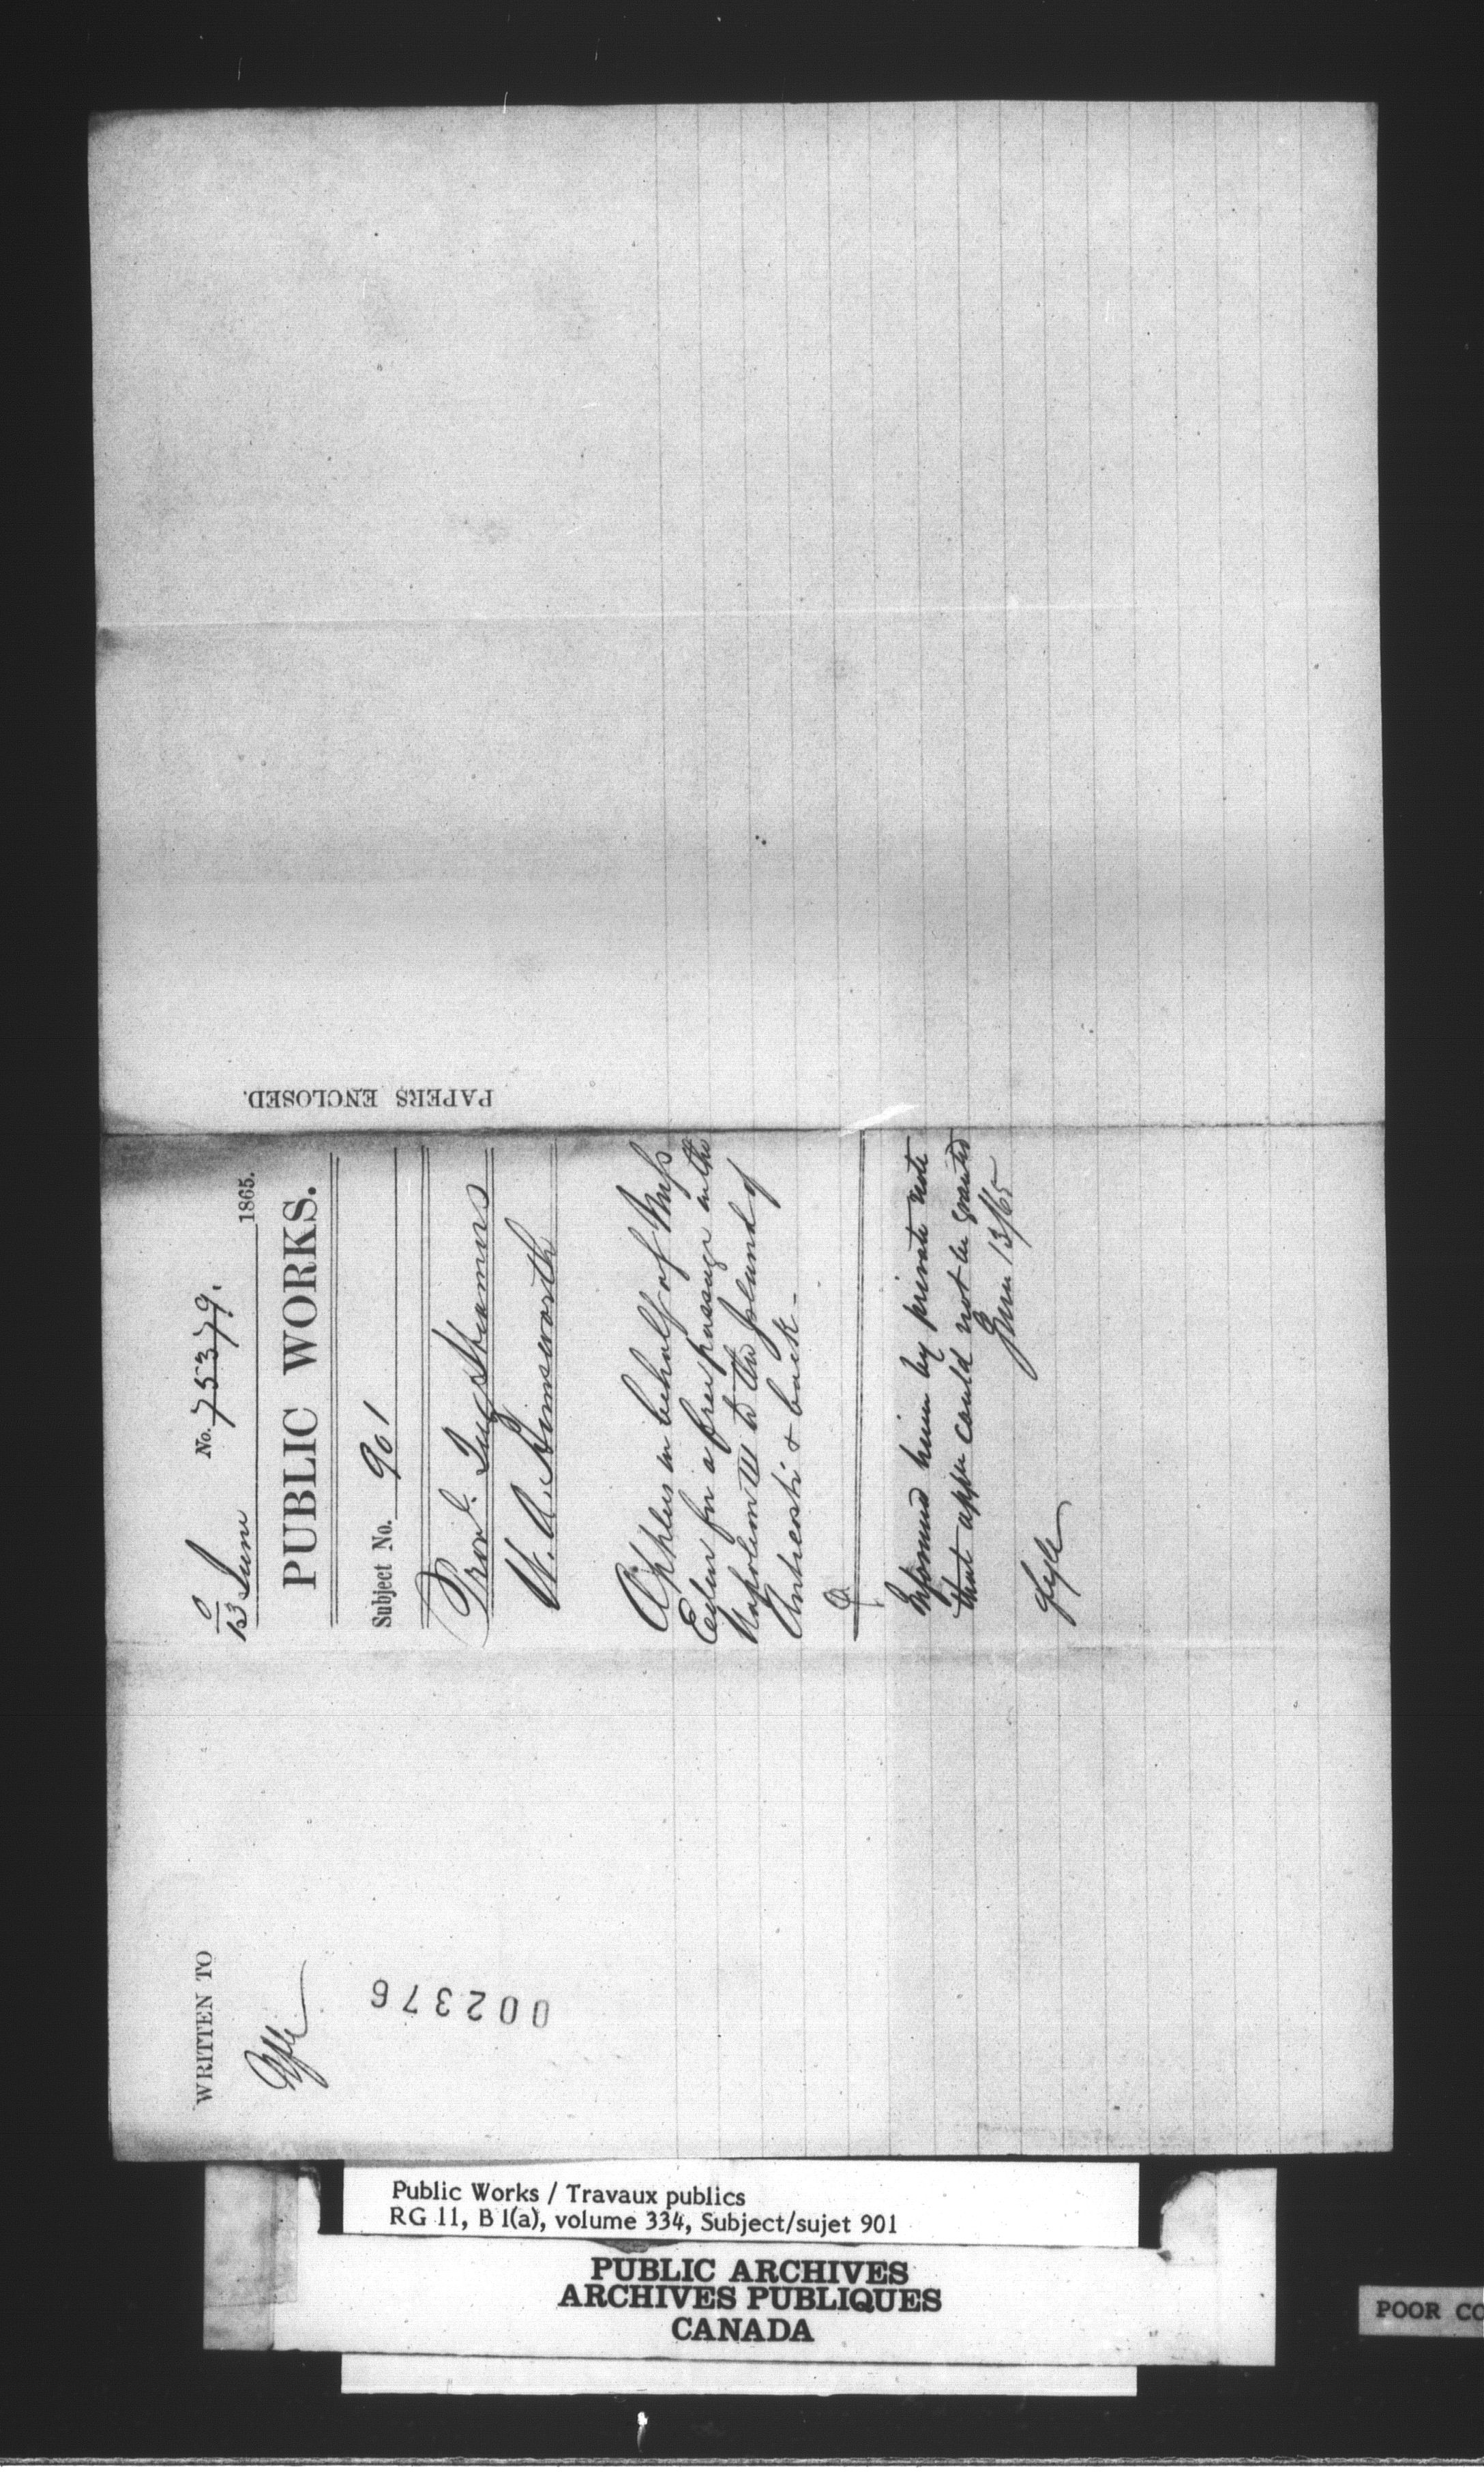 WRITTEN TO
002376
No. 75379.
13 June 1865.
PUBLIC WORKS.
Subject No. 901
Prov'l.
W. A. Himsworth
Applies on behalf of Miss
Eden for a free passage in the
Napoleon III to the Island of
Anticosti & back -
Informed him by private note
that appn could not be granted
June 13/65
fyle
PAPERS ENCLOSED.
Public Works / Travaux publics
RG 11, B 1(a), volume 334, Subject/sujet 901
PUBLIC ARCHIVES
ARCHIVES PUBLIQUES
CANADA
POOR CO